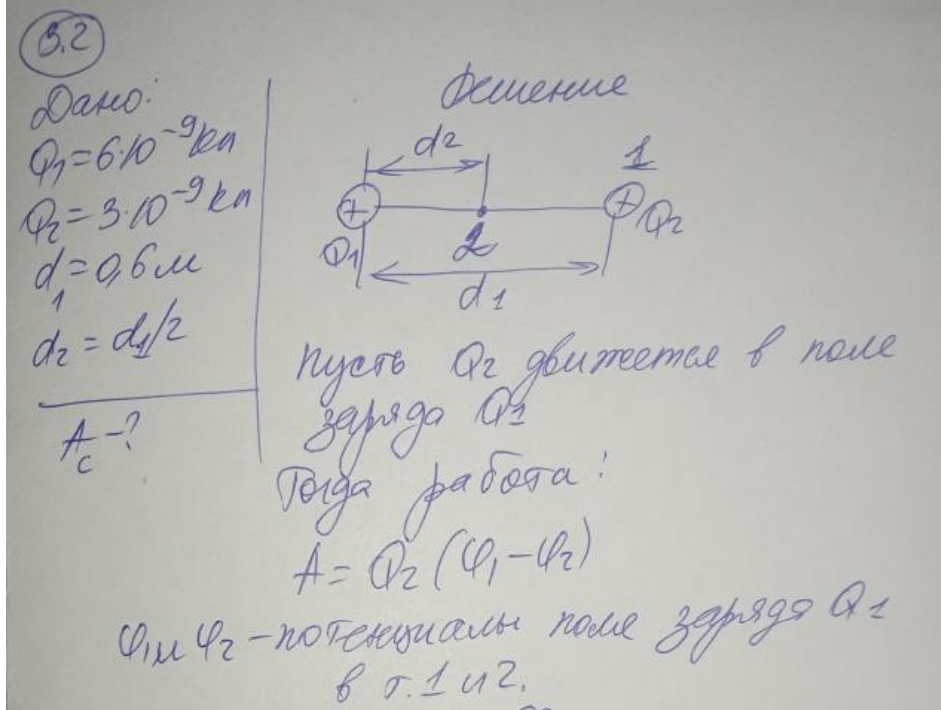 3.2
Дано:
Q₁=6·10⁻⁹ Кл
Q₂=3·10⁻⁹ Кл
d₁=0,6 м
d₂=d₁/2
A_c-?
Решение
d₂
1
+
+
Q₁
2
Q₂
d₁
Пусть Q₂ движется в поле
заряда Q₁
Тогда работа:
A=Q₂(φ₁-φ₂)
φ₁ и φ₂-потенциалы поле заряда Q₁
в т.1 и 2.